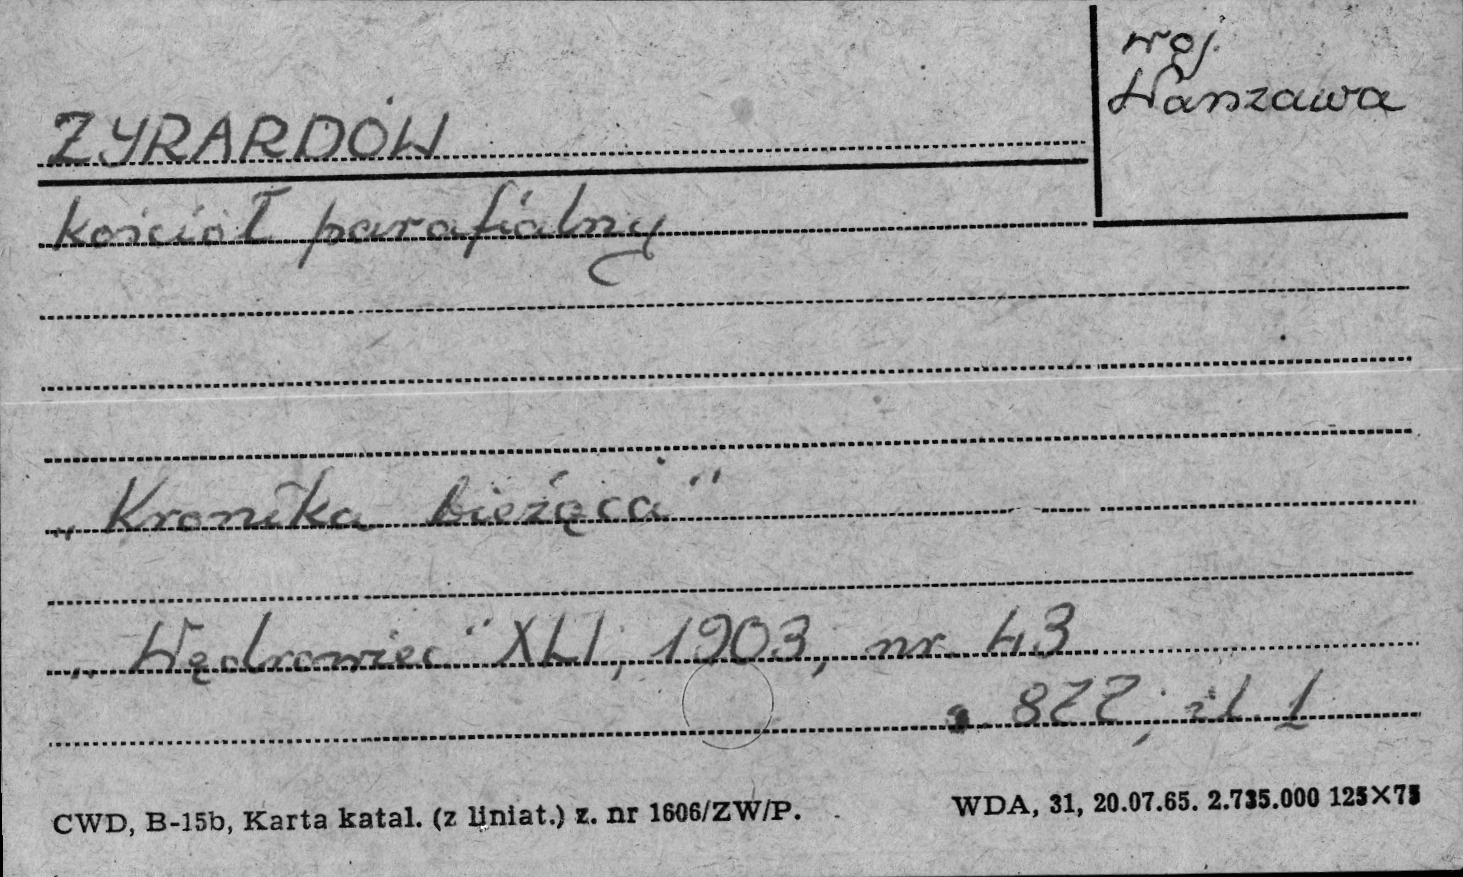 woj.
Warszawa
ŻYRARDÓW
kościół parafialny
„Kronika bieżąca"
„Wędrowiec" XLI, 1903, nr. 43
s. 822; il. 1
CWD, B-15b, Karta katal. (z liniat.) z. nr 1606/ZW/P.
WDA, 31, 20.07.65. 2.735.000 125×75